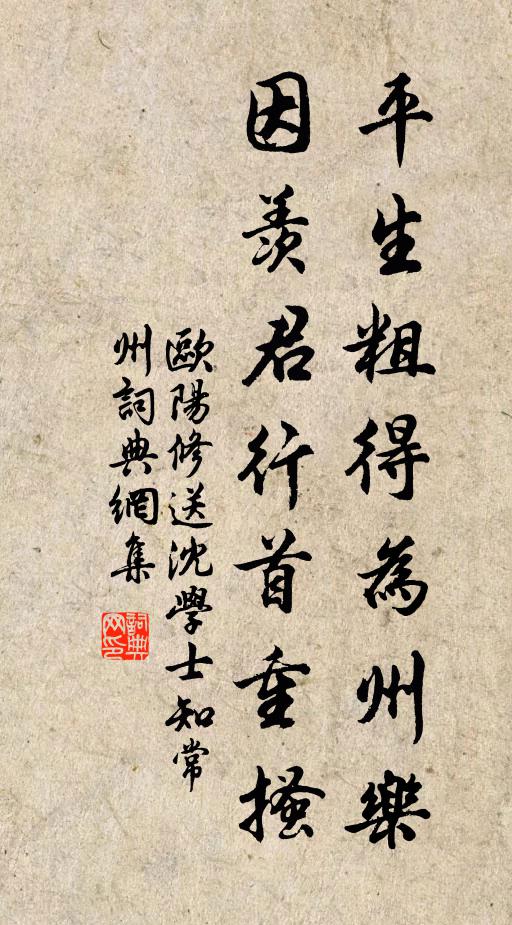 平生粗得為州樂
因羨君行首重搔
歐陽修送沈學士知常
州詞典網集
詞典网印